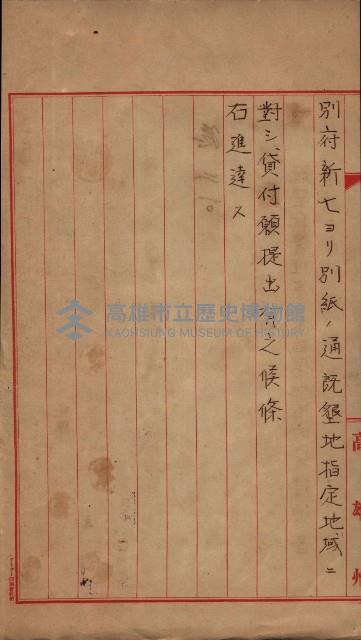 別府新七ヨリ別紙ノ通既墾地指定地域ニ
對シ貸付願提出有之候條
右進達ス
高雄州
高雄市立歷史博物館
KAOHSIUNG MUSEUM OF HISTORY